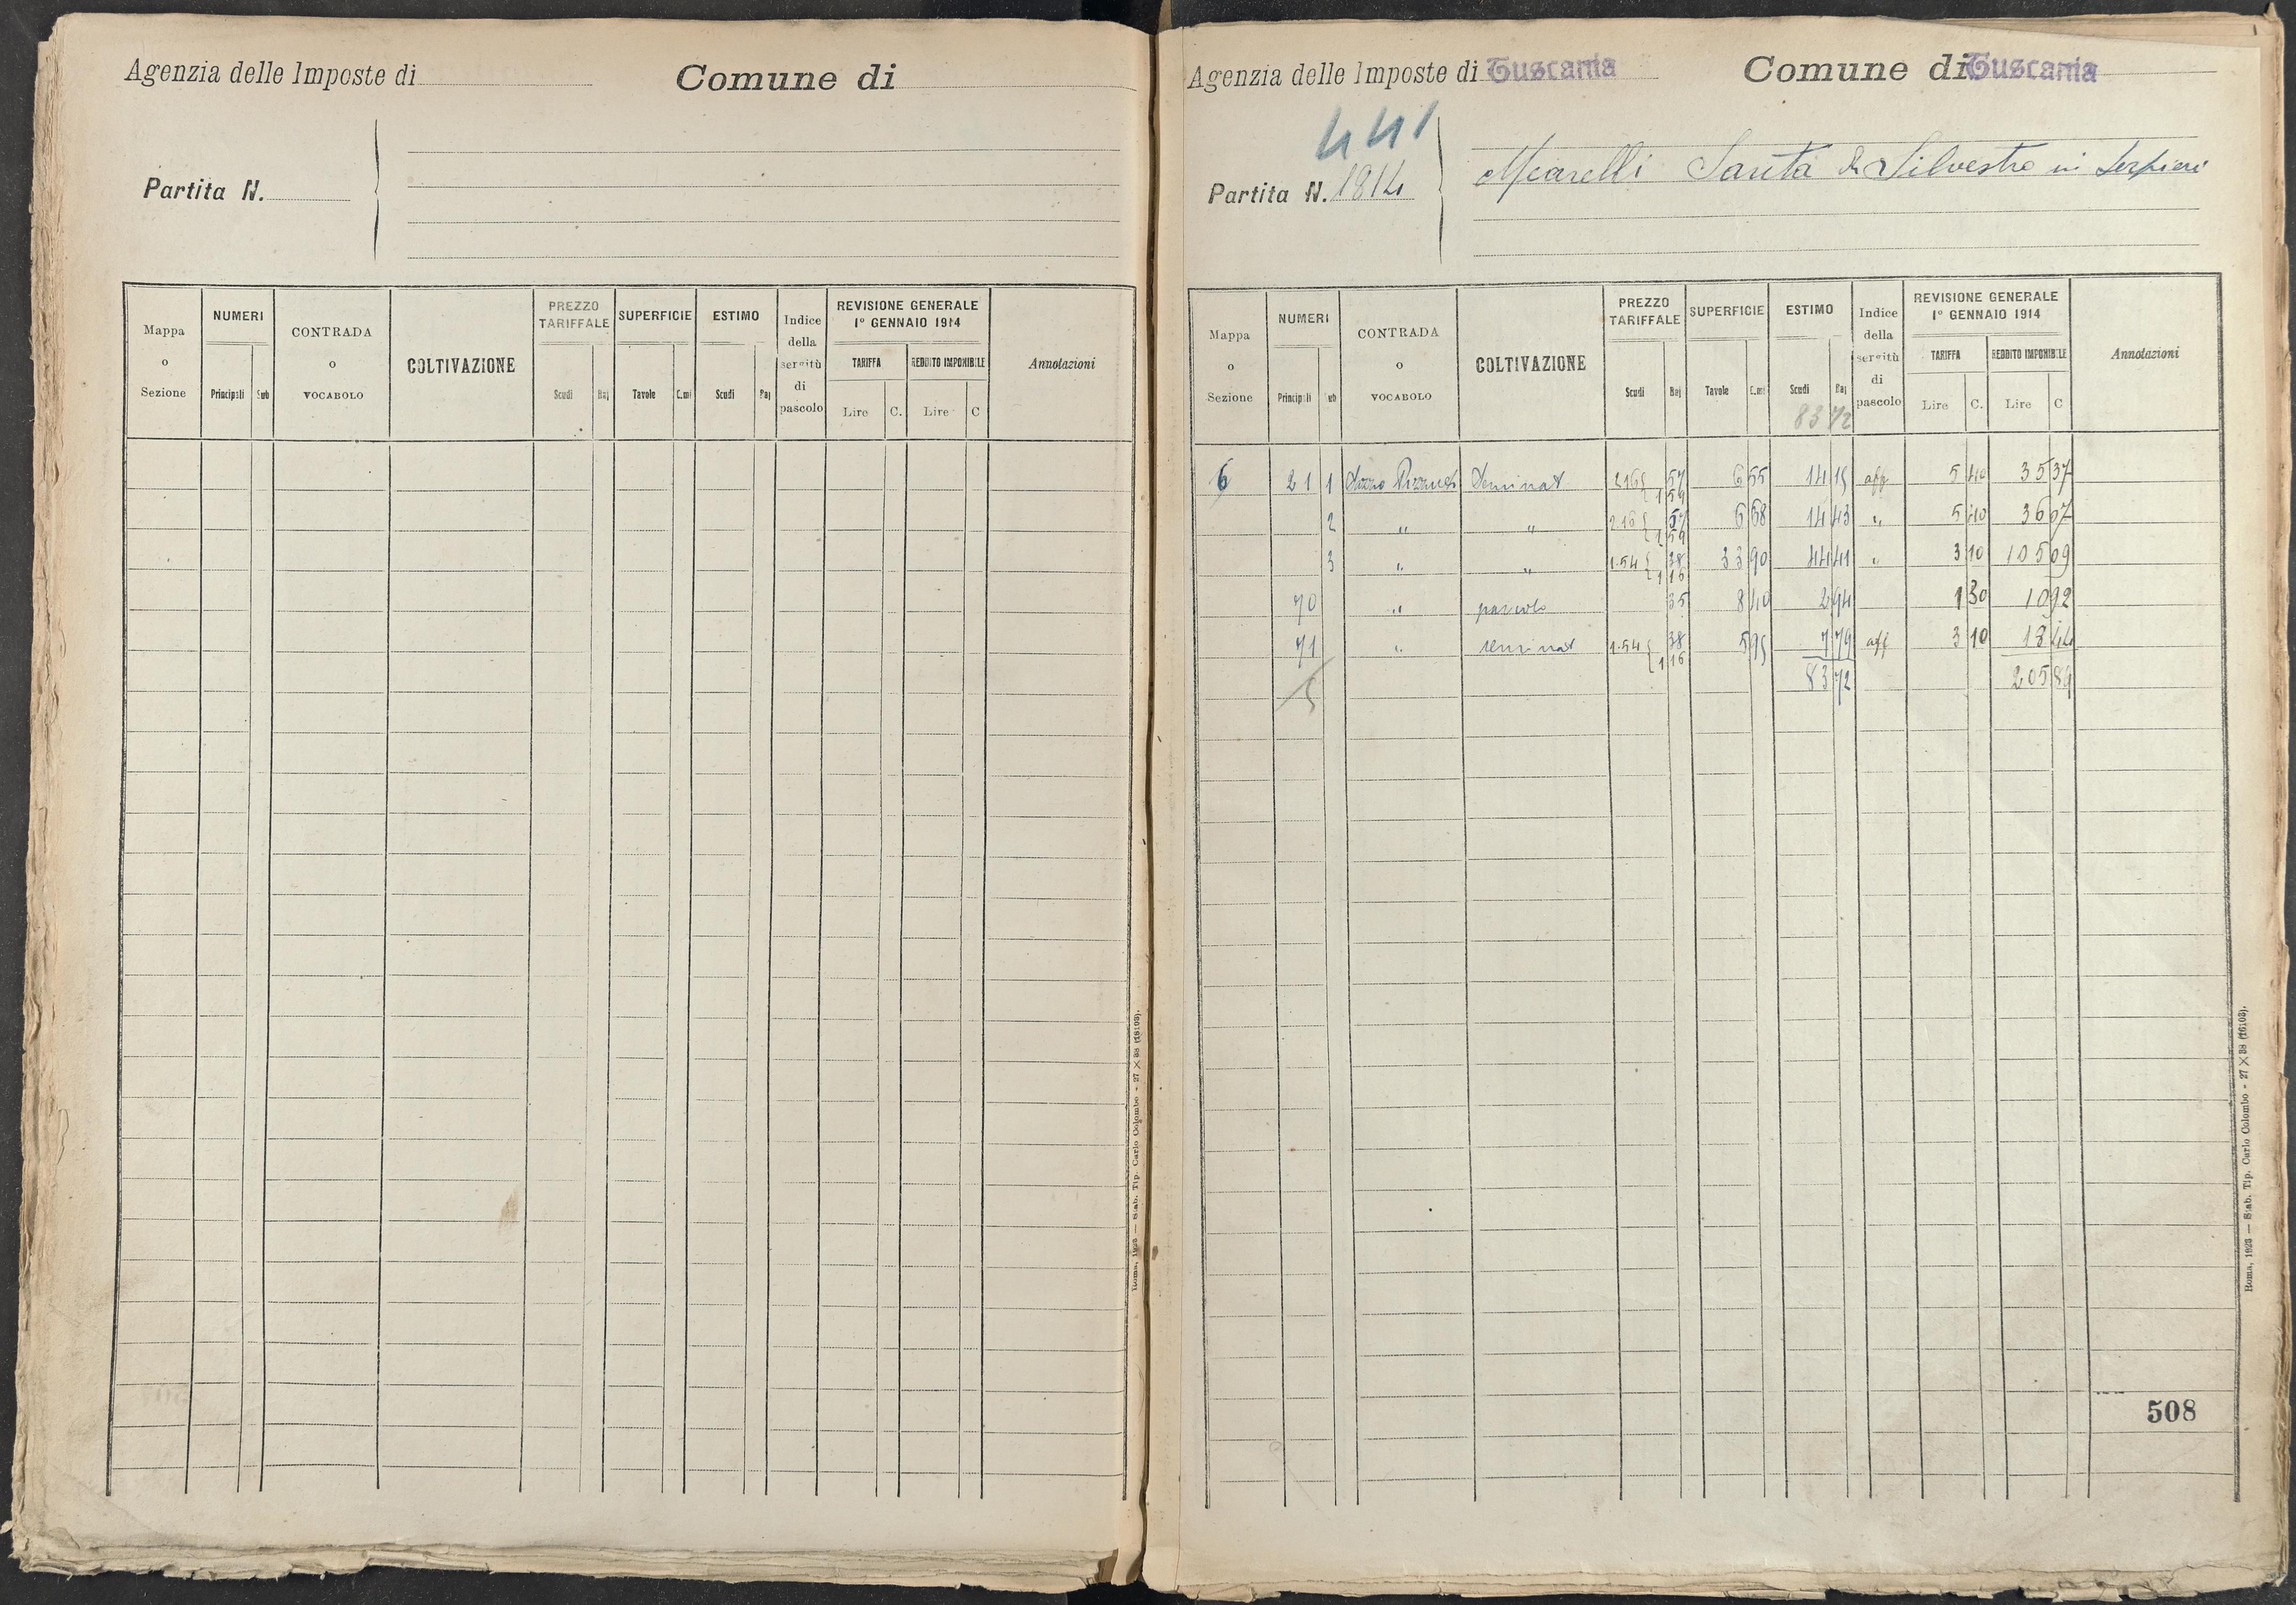 Agenzia delle Imposte di
Comune di
Partita N.
Mappa o Sezione
NUMERI
Principali
Sub
CONTRADA o VOCABOLO
COLTIVAZIONE
PREZZO TARIFFALE
Scudi
Baj
SUPERFICIE
Tavole
C.mi
ESTIMO
Scudi
Baj
Indice della servitù di pascolo
REVISIONE GENERALE
1° GENNAIO 1914
TARIFFA
REDDITO IMPONIBILE
Lire
C.
Lire
C
Annotazioni
Roma, 1923 — Stab. Tip. Carlo Colombo - 27 X 38 (16103).
Agenzia delle Imposte di Tuscania
Comune di Tuscania
441
Partita N. 1814
Mearelli Santa di Silvestro in Serpieri
Mappa o Sezione
NUMERI
Principali
Sub
CONTRADA o VOCABOLO
COLTIVAZIONE
PREZZO TARIFFALE
Scudi
Baj
SUPERFICIE
Tavole
C.mi
ESTIMO
Scudi
Baj
83 72
Indice della servitù di pascolo
REVISIONE GENERALE
1° GENNAIO 1914
TARIFFA
REDDITO IMPONIBILE
Lire
C.
Lire
C
Annotazioni
6 21 1 Seminat 2.16 { 57 1 59 6 55 14 15 aff 5 40 35 37
2 " " 2.16 { 57 1 59 6 68 14 43 " 5 40 36 07
3 " " 1.54 { 38 1 16 33 90 44 41 " 3 10 105 09
70 " pascolo 35 8 40 2 94 1 30 10 92
71 " seminat 1.54 { 38 1 16 5 95 7 79 aff 3 10 18 44
5 83 72 205 89
508
Roma, 1923 — Stab. Tip. Carlo Colombo - 27 X 38 (16103).